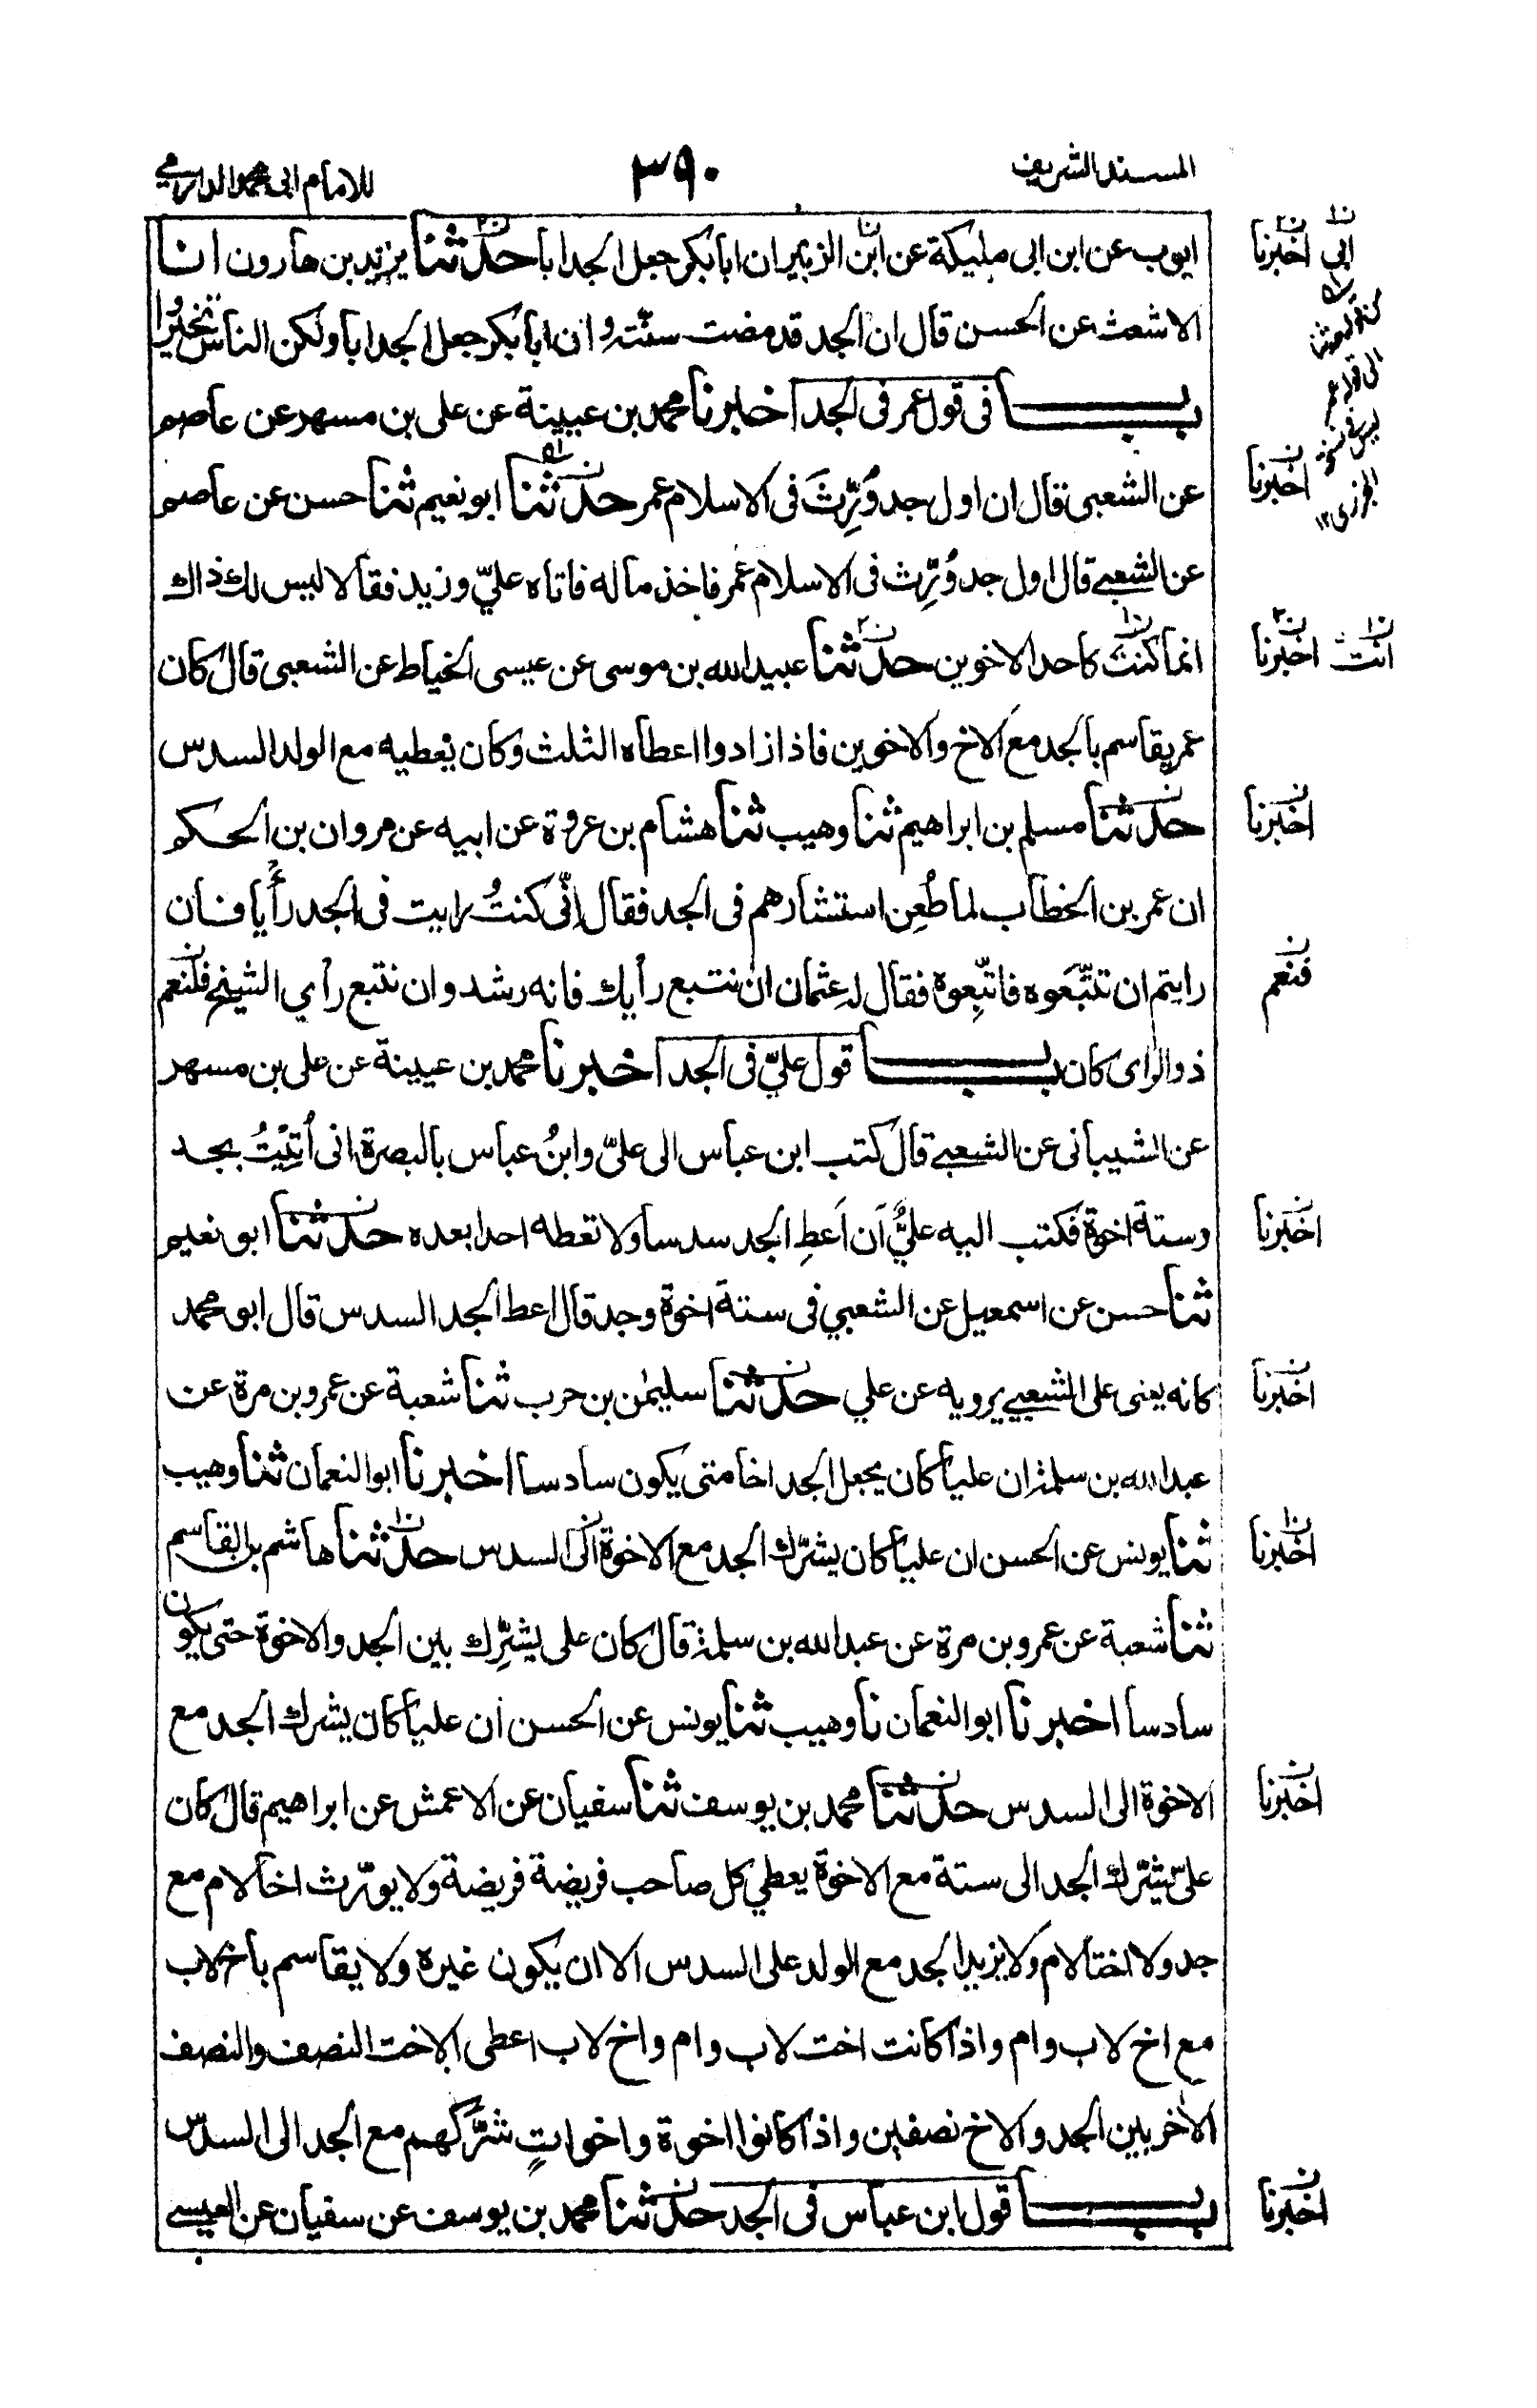 المسند الشريف
٣٩٠
للامام ابى محمد الدارمي
ايوب عن ابن ابى مليكة عن ابن الزبير ان ابابكر جعل الجد ابا حدثنا يزيد بن هارون انا
الاشعث عن الحسن قال ان الجد قد مضت سنته وان ابابكر جعل الجد ابا ولكن الناس تخيروا
باب فى قول عمر فى الجد اخبرنا محمد بن عيينة عن على بن مسهر عن عاصم
عن الشعبى قال ان اول جد وُرِّثَ فى الاسلام عمر حدثنا ابو نعيم ثنا حسن عن عاصم
عن الشعبي قال اول جد وُرِّث فى الاسلام عمر فاخذ ماله فاتاه عليّ وزيد فقالا ليس لك ذاك
انما كنتَ كاحد الاخوين حدثنا عبيد الله بن موسى عن عيسى الخياط عن الشعبى قال كان
عمر يقاسم بالجد مع الاخ والاخوين فاذا زادوا اعطاه الثلث وكان يعطيه مع الولد السدس
حدثنا مسلم بن ابراهيم ثنا وهيب ثنا هشام بن عروة عن ابيه عن مروان بن الحكم
ان عمر بن الخطاب لما طُعِن استشارهم فى الجد فقال اِنّى كنتُ رايت فى الجد رأيا فان
رايتم ان تتّبعَوه فاتّبِعوه فقال له عثمان ان نتبع رأيك فانه رشد وان نتبع رأي الشيخ فلنعم
ذو الراى كان باب قول عليّ فى الجد اخبرنا محمد بن عيينة عن على بن مسهر
عن الشيبانى عن الشعبي قال كتب ابن عباس الى عليّ وابنُ عباس بالبصرة انى اُتِيْتُ بجد
وستة اخوة فكتب اليه عليٌّ اَن اَعطِ الجد سدسا ولا تعطه احدا بعده حدثنا ابو نعيم
ثنا حسن عن اسمعيل عن الشعبي فى ستة اخوة وجد قال اعط الجد السدس قال ابو محمد
كانه يعنى على الشعبي يرويه عن علي حدثنا سليمٰن بن حرب ثنا شعبة عن عمرو بن مرة عن
عبد الله بن سلمة ان عليا كان يجعل الجد اخا متى يكون سادسا اخبرنا ابو النعمان ثنا وهيب
ثنا يونس عن الحسن ان عليا كان يشرّك الجد مع الاخوة الى السدس حدثنا هاشم بن القاسم
ثنا شعبة عن عمرو بن مرة عن عبد الله بن سلمة قال كان على يشرِّك بين الجد والاخوة حتى يكون
سادسا اخبرنا ابو النعمان نا وهيب ثنا يونس عن الحسن ان عليا كان يشرك الجد مع
الاخوة الى السدس حدثنا محمد بن يوسف ثنا سفيان عن الاعمش عن ابراهيم قال كان
علىّ يشرّك الجد الى ستة مع الاخوة يعطي كل صاحب فريضة فريضة ولا يورّث اخا لام مع
جد ولا اختا لام ولا يزيد الجد مع الولد على السدس الا ان يكون غيره ولا يقاسم باخ لاب
مع اخ لاب وام واذا كانت اخت لاب وام واخ لاب اعطى الاخت النصف والنصف
الاٰخر بين الجد والاخ نصفين واذا كانوا اخوة واخواتٍ شرّكهم مع الجد الى السدس
باب قول ابن عباس فى الجد حدثنا محمد بن يوسف عن سفيان عن العبسي
ابى اخبرنا
اخبرنا
انت اخبرنا
اخبرنا
فنعم
اخبرنا
اخبرنا
اخبرنا
اخبرنا
اخبرنا